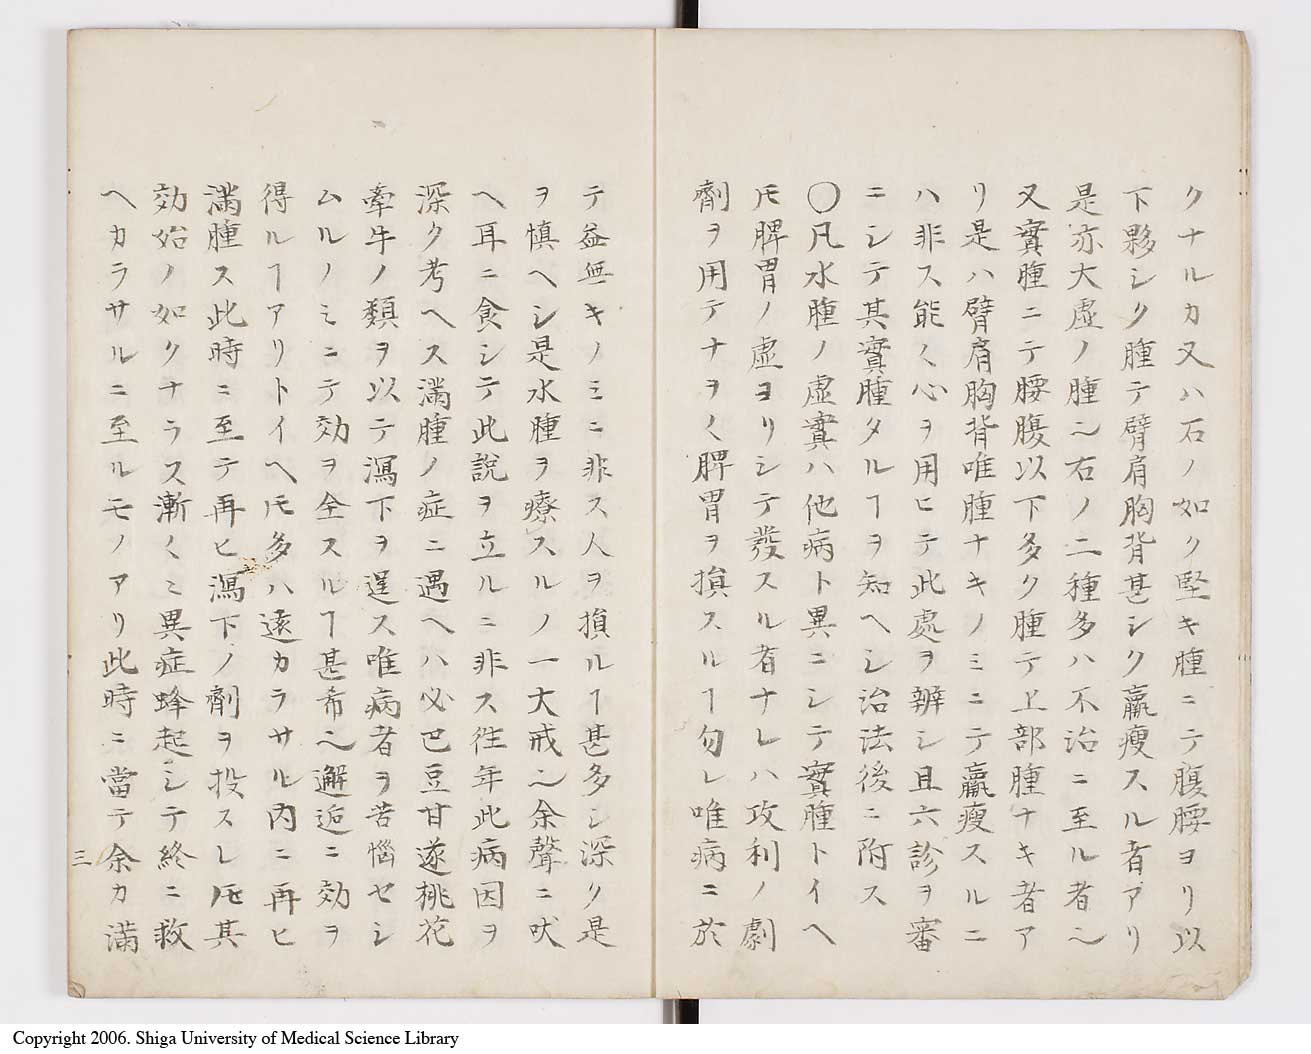 クナルカ又ハ石ノ如ク堅キ腫ニテ腹腰ヨリ以
下夥シク腫テ臂肩胸背甚シク羸瘦スル者アリ
是亦大虚ノ腫〜右ノ二種多ハ不治ニ至ル者〜
又實腫ニテ腰腹以下多ク腫テ上部腫ナキ者ア
リ是ハ臂肩胸背唯腫ナキノミニテ羸瘦スルニ
ハ非ス能〱心ヲ用ヒテ此處ヲ辨シ且六診ヲ審
ニシテ其實腫タルヿヲ知ヘシ治法後ニ附ス
〇凡水腫ノ虚實ハ他病ト異ニシテ實腫トイヘ
𪜈脾胃ノ虚ヨリシテ發スル者ナレハ攻利ノ劇
劑ヲ用テナヲ〱脾胃ヲ損スルヿ勿レ唯病ニ於
テ益無キノミニ非ス人ヲ損ルヿ甚多シ深ク是
ヲ慎ヘシ是水腫ヲ療スルノ一大戒〜余聲ニ吠
ヘ耳ニ食シテ此說ヲ立ルニ非ス徃年此病因ヲ
深ク考ヘス滿腫ノ症ニ遇ヘハ必巴豆甘遂桃花
牽牛ノ類ヲ以テ瀉下ヲ逞ス唯病者ヲ苦惱セシ
ムルノミニテ効ヲ全スルヿ甚希〜邂逅ニ効ヲ
得ルヿアリトイヘ𪜈多ハ遠カラサル内ニ再ヒ
滿腫ス此時ニ至テ再ヒ瀉下ノ劑ヲ投スレ𪜈其
効始ノ如クナラス漸〱ミ異症蜂起シテ終ニ救
ヘカラサルニ至ルモノアリ此時ニ當テ余カ滿
三
Copyright 2006. Shiga University of Medical Science Library